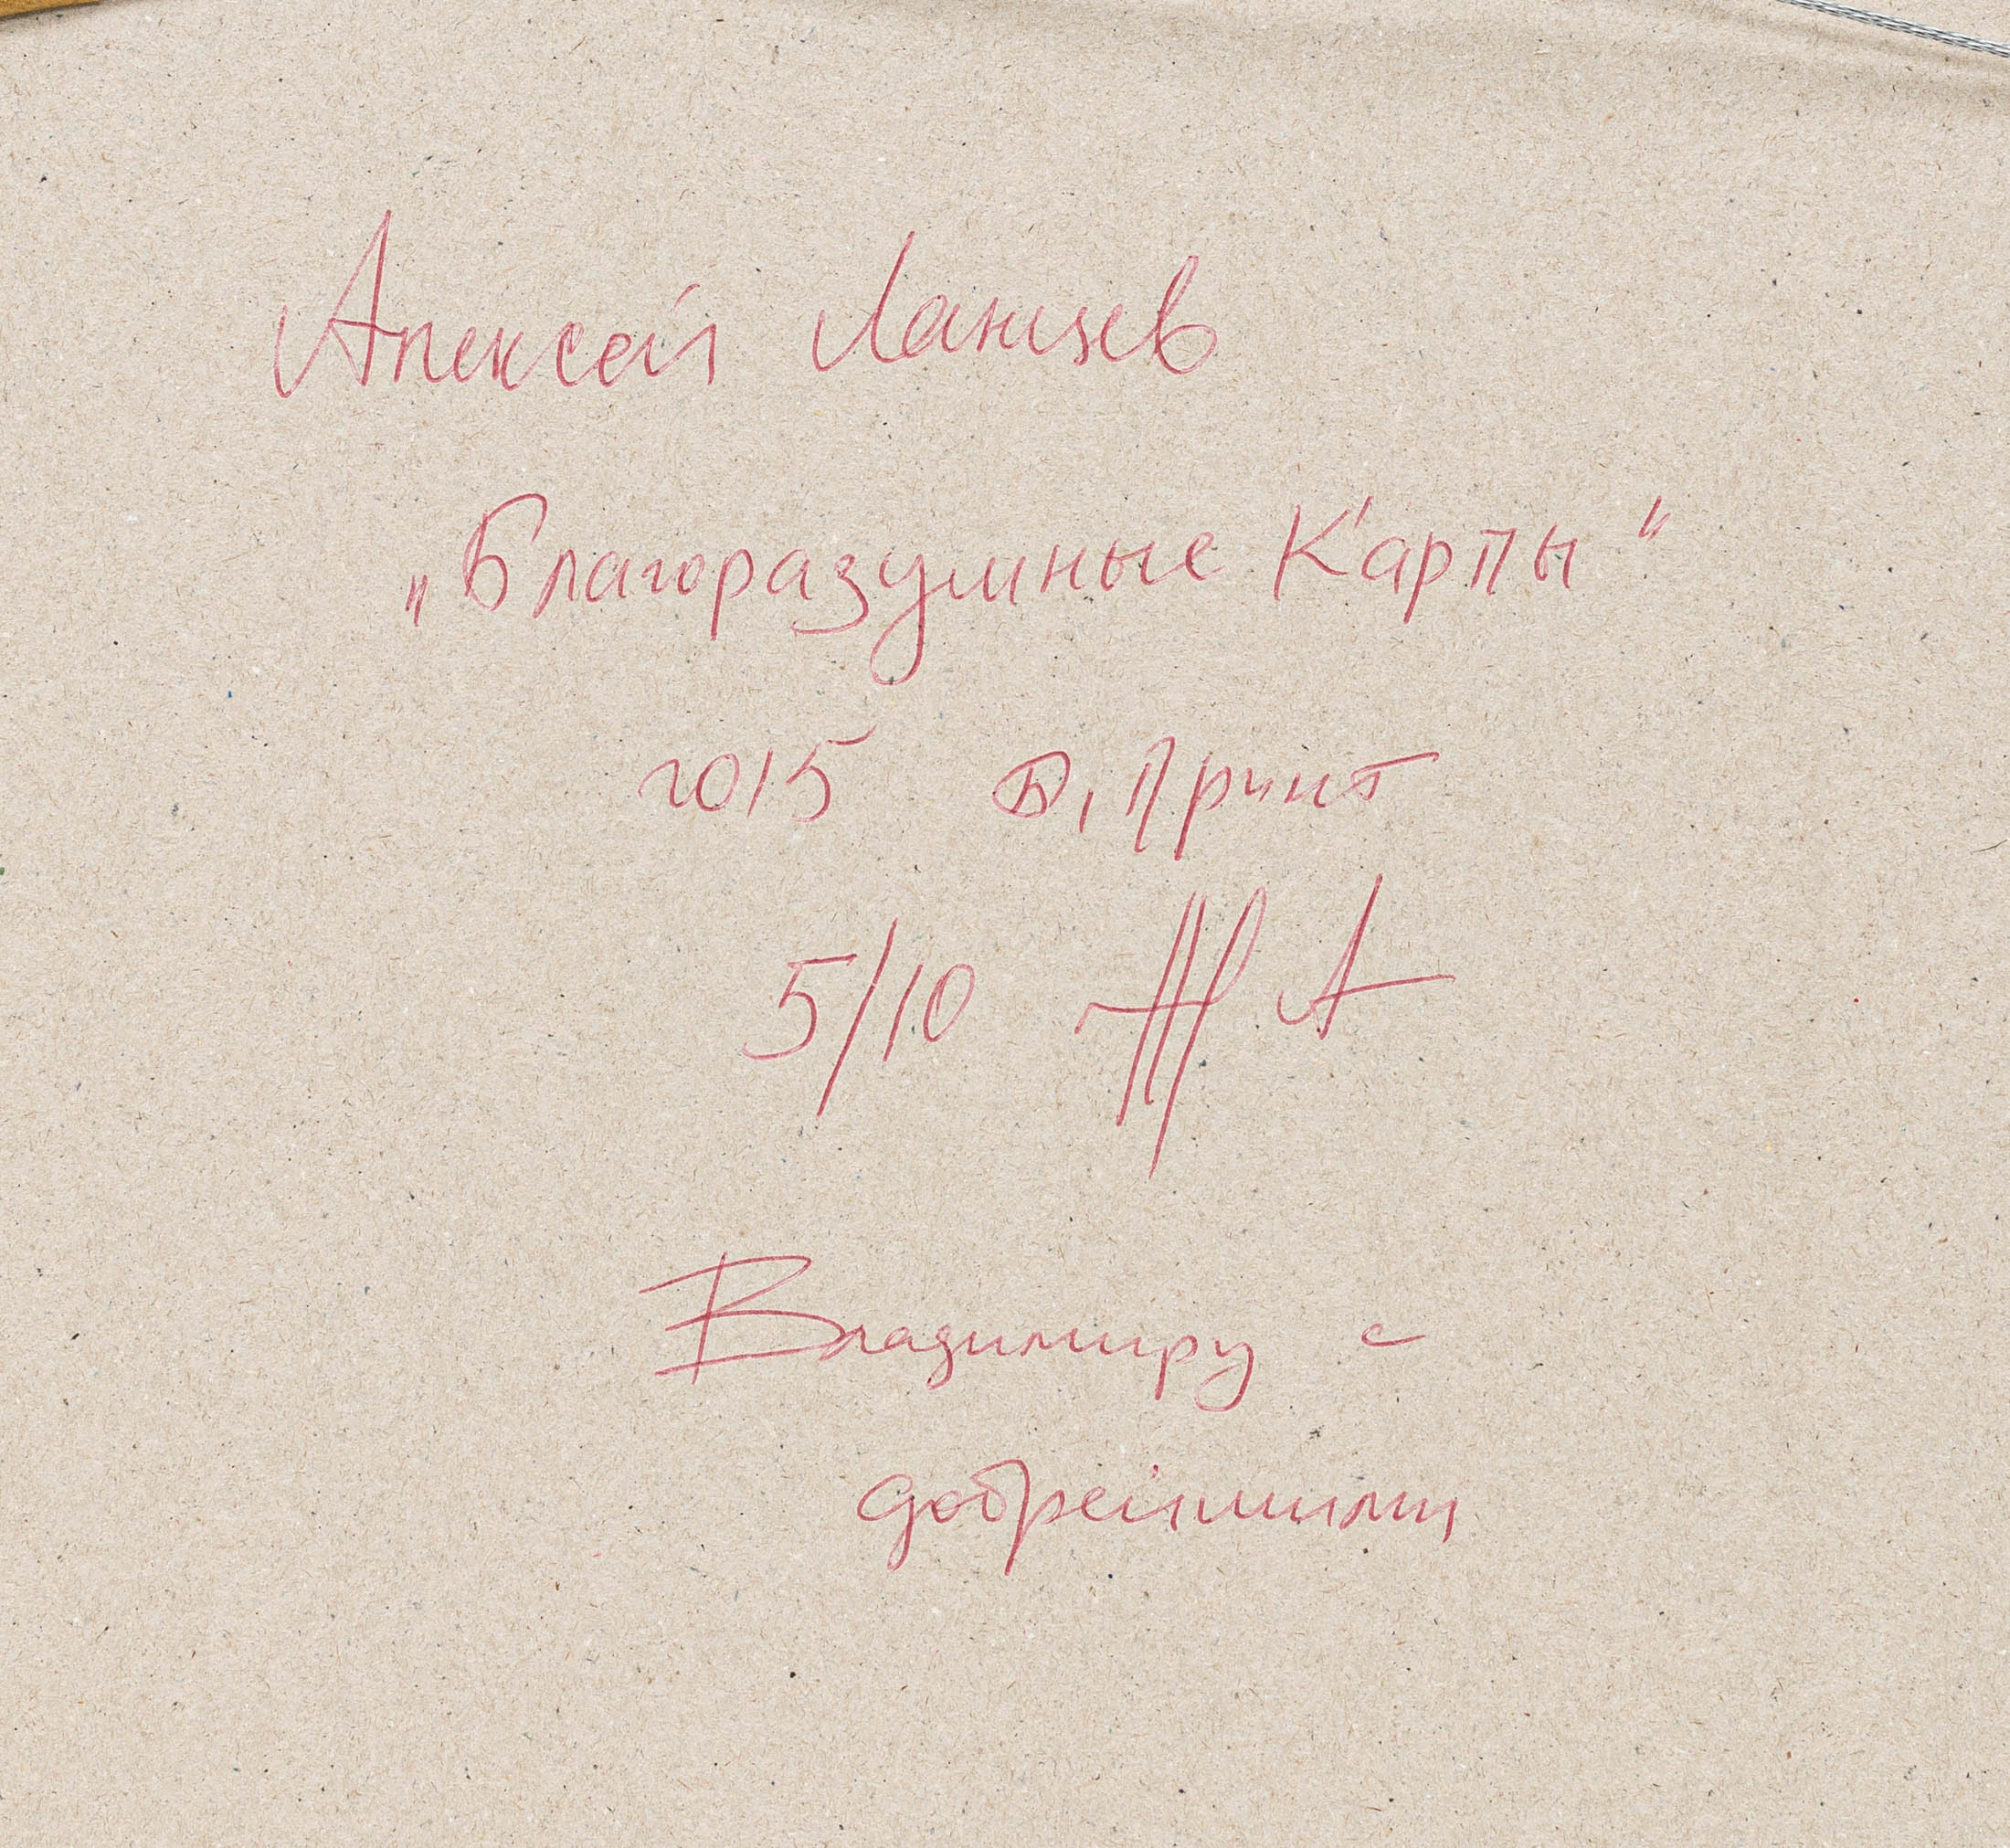 Алексей Ланцев
„Благоразумные Карпы“
2015 Принт
5/10
Владимиру с
добрейшими